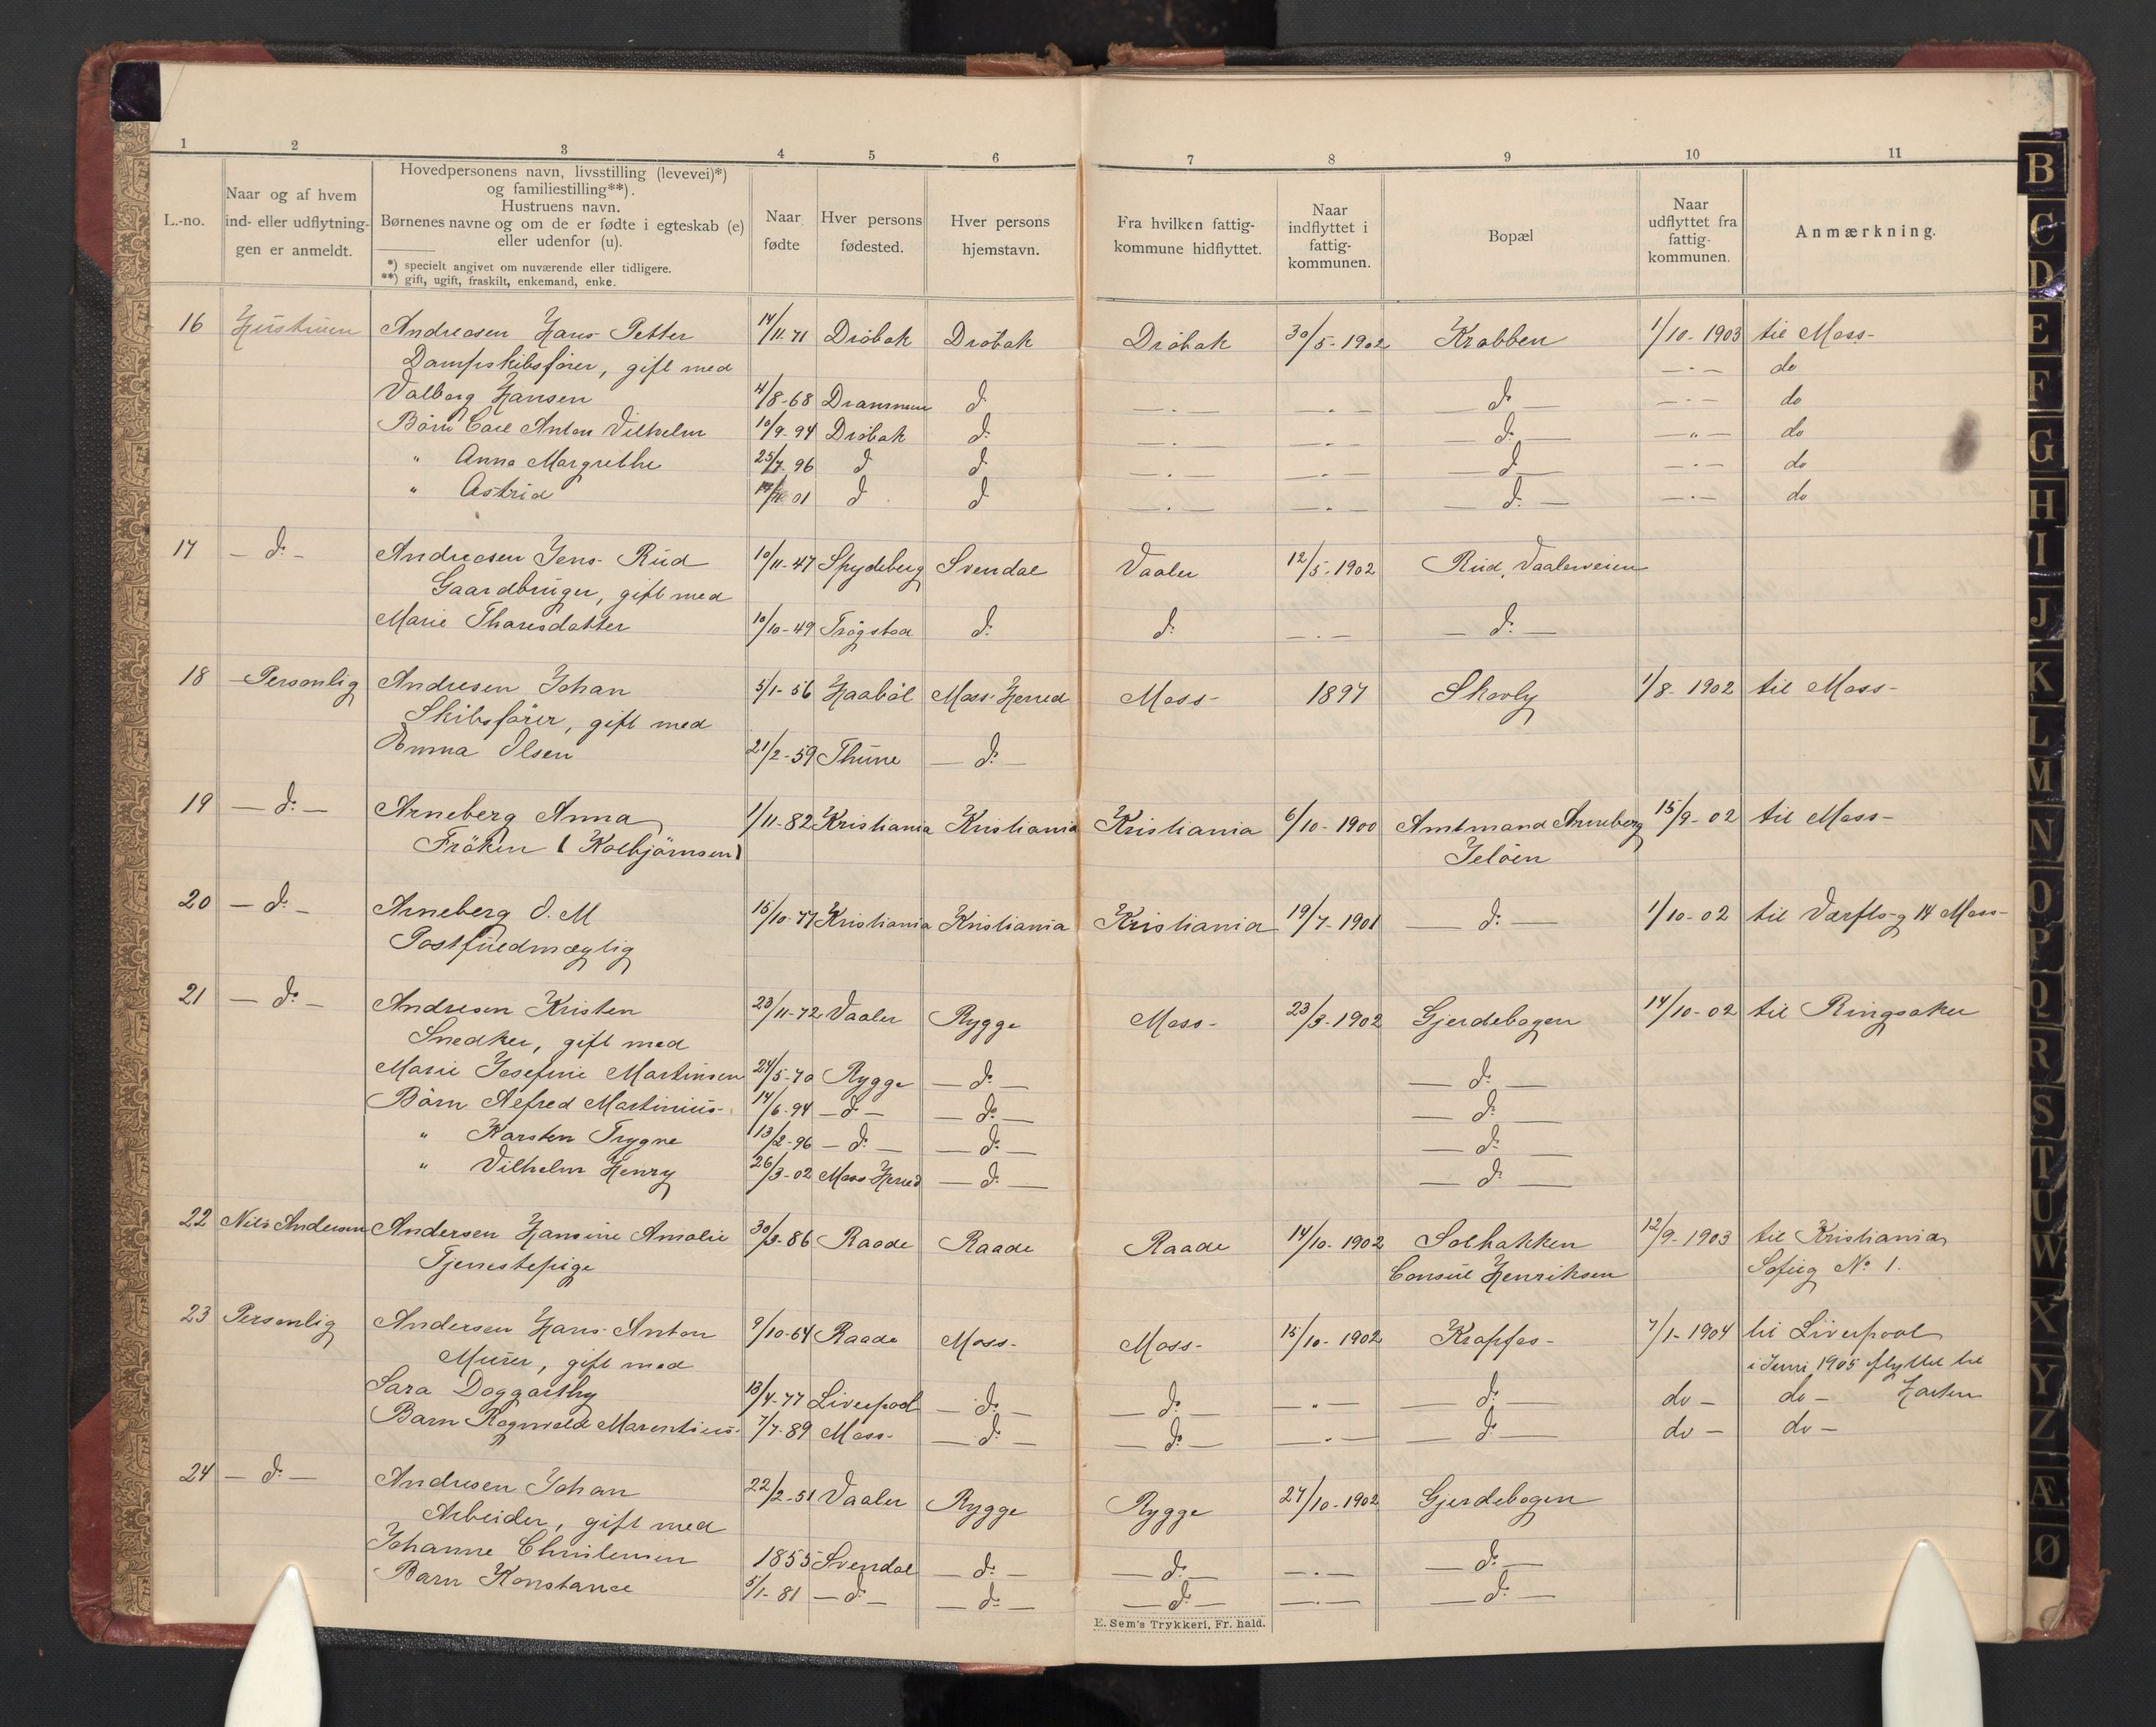 1 2 3 4 5 6 7 8 9 10 11
L.-no.
Naar og af hvem
ind- eller udflytnin-
gen er anmeldt.
Hovedpersonens navn, livsstilling (levevei)*)
og familiestilling**).
Hustruens navn.
Børnenes navne og om de er fødte i egteskab (e)
eller udenfor (u).
*) specielt angivet om nuværende eller tidligere.
**) gift, ugift, fraskilt, enkemand, enke.
Naar
fødte
Hver persons
fødested.
Hver persons
hjemstavn.
Fra hvilken fattig-
kommune hidflyttet.
Naar
indflyttet i
fattig-
kommunen.
Bopæl
Naar
udflyttet fra
fattig-
kommunen.
Anmærkning.
16 Hustruen Andreasen Hans Petter 14/11-71 Drøbak Drøbak Drøbak 30/5-1902 Krabben 1/10-1903 til Moss-
Dampskibsfører, gift med — . — do
Valborg Hansen 4/8-68 Drammen do — . — — . — — do — — . — do
Børn Carl Anton Vilhelm 10/9-94 Drøbak do — . — — . — — do — — „ — do
" Anna Margrethe 25/7-96 do do — . — — . — — do — — . — do
" Astrid 01 do do — . — — . — — do — — . — do
17 — do — Andreasen Jens Rud 10/11-47 Spydeberg Svendal Vaaler 12/5-1902 Rud, Vaalerveien
Gaardbruger, gift med
Marie Thoresdatter 10/10-49 Trøgstad do do — . — — do —
18 Personlig Andresen Johan 5/1-56 Haabøl Moss Herred Moss- 1897 Skovly 1/8-1902 til Moss-
Skibsfører, gift med
Emma Olsen 21/2-59 Thune — do —
19 — do — Arneberg Anna 1/11-82 Kristiania Kristiania Kristiania 6/10-1900 Amtmand Arneberg 15/9-02 til Moss-
Frøken (Kolbjørnsen) Jeløen
20 — do — Arneberg O. M 15/10-77 Kristiania Kristiania Kristiania 19/7-1901 — do — 1/10-02 til Værftsg 14 Moss-
Postfuldmægtig
21 — do — Andresen Kristen 23/11-72 Vaaler Rygge Moss- 23/3-1902 Gjerdebogen 14/10-02 til Ringsaker
Snedker, gift med
Marie Josefine Martinsen 24/5-70 Rygge — do — — do —
Børn Alfred Martinius- 14/6-94 — do — — do — — do —
" Karsten Trygve 13/2-96 — do — — do — — do —
" Vilhelm Henry 26/3-02 Moss Herred — do — — do —
22 Nils Andersen Andersen Hansine Amalie 30/3-86 Raade Raade Raade 14/10-1902 Solbakken 12/9-1903 til Kristiania
Tjenestepige Consul Henriksen Sofieg No 1.
23 Personlig Andersen Hans Anton 9/10-64 Raade Moss- Moss- 15/10-1902 Krapfos- 7/1-1904 til Liverpool
Murer, gift med i Juni 1905 flyttet til
Sara Doggarthy 13/4-77 Liverpool — do — — do — — „ — — do — do — do —
Barn Ragnvald Marentius- 7/7-89 Moss- — do — — do — — . — — do — do — do —
24 — do — Andresen Johan 22/2-51 Vaaler Rygge Rygge 27/10-1902 Gjerdebogen
Arbeider, gift med
Johanne Christensen 1855 Svendal — do — — do — — . — — do —
Barn Konstance 5/1-81 — do — — do — — do — — . — — do —
E. Sem's Trykkeri, Fr. hald.
B
C
D
E
F
G
H
I
J
K
L
M
N
O
P
Q
R
S
T
U
W
X
Y
Z
Æ
Ø